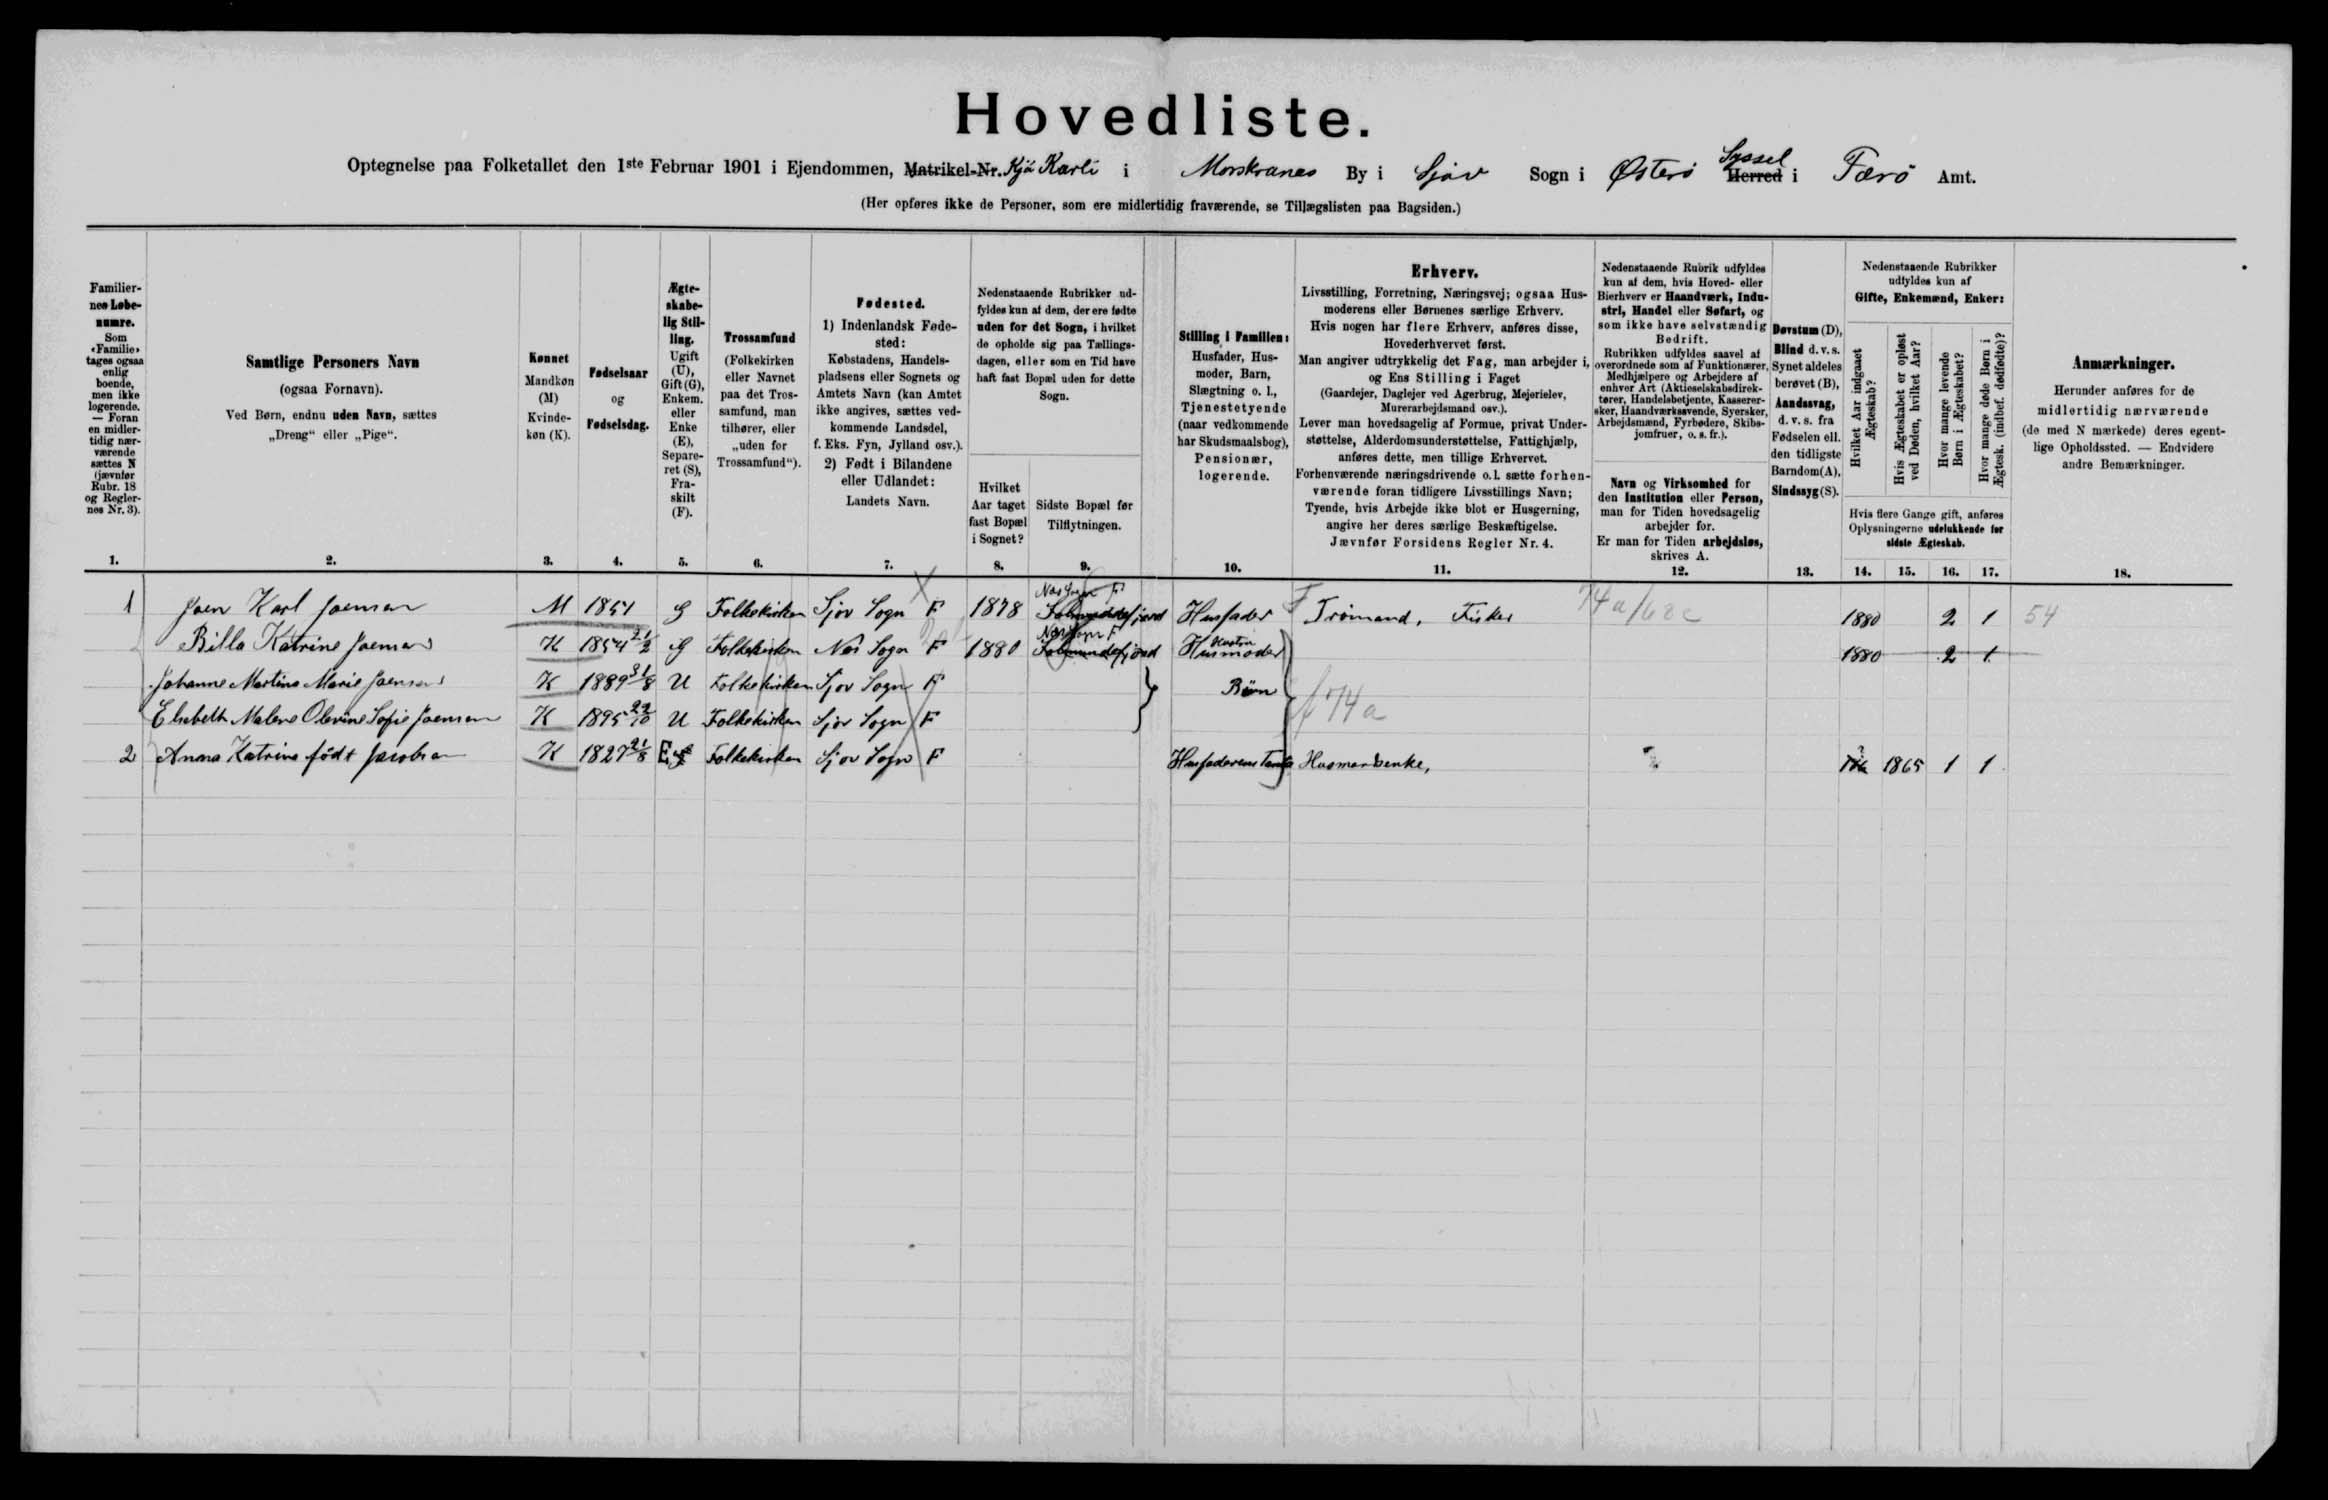 Hovedliste.
Optegnelse paa Folketallet den 1ste Februar 1901 i Ejendommen, Matrikel-Nr. Kjá Karli i Morskranes By i Sjov Sogn i Østerø Herred Syssel i Færö Amt.
(Her opføres ikke de Personer, som ere midlertidig fraværende, se Tillægslisten paa Bagsiden.)
Familiernes Løbenumre.
Som «Familie» tages ogsaa enlig boende, men ikke logerende. — Foran en midlertidig nærværende sættes N (jævnfør Rubr. 18 og Reglernes Nr. 3).
1.
Samtlige Personers Navn
(ogsaa Fornavn).
Ved Børn, endnu uden Navn, sættes
„Dreng“ eller „Pige“.
2.
Kønnet
Mandkøn
(M)
Kvinde-
køn (K).
3.
Fødselsaar
og
Fødselsdag.
4.
Ægte-
skabe-
lig Stil-
ling.
Ugift
(U),
Gift (G),
Enkem.
eller
Enke
(E),
Separe-
ret (S),
Fra-
skilt
(F).
5.
Trossamfund
(Folkekirken
eller Navnet
paa det Tros-
samfund, man
tilhører, eller
„uden for
Trossamfund“).
6.
Fødested.
1) Indenlandsk Føde-
sted:
Købstadens, Handels-
pladsens eller Sognets og
Amtets Navn (kan Amtet
ikke angives, sættes ved-
kommende Landsdel,
f. Eks. Fyn, Jylland osv.).
2) Født i Bilandene
eller Udlandet:
Landets Navn.
7.
Nedenstaaende Rubrikker ud-
fyldes kun af dem, der ere fødte
uden for det Sogn, i hvilket
de opholde sig paa Tællings-
dagen, eller som en Tid have
haft fast Bopæl uden for dette
Sogn.
Hvilket
Aar taget
fast Bopæl
i Sognet?
8.
Sidste Bopæl før
Tilflytningen.
9.
Stilling i Familien:
Husfader, Hus-
moder, Barn,
Slægtning o. l.,
Tjenestetyende
(naar vedkommende
har Skudsmaalsbog),
Pensionær,
logerende.
10.
Erhverv.
Livsstilling, Forretning, Næringsvej; ogsaa Hus-
moderens eller Børnenes særlige Erhverv.
Hvis nogen har flere Erhverv, anføres disse,
Hovederhvervet først.
Man angiver udtrykkelig det Fag, man arbejder i,
og Ens Stilling i Faget
(Gaardejer, Daglejer ved Agerbrug, Mejerielev,
Murerarbejdsmand osv.).
Lever man hovedsagelig af Formue, privat Under-
støttelse, Alderdomsunderstøttelse, Fattighjælp,
anføres dette, men tillige Erhvervet.
Forhenværende næringsdrivende o. l. sætte forhen-
værende foran tidligere Livsstillings Navn;
Tyende, hvis Arbejde ikke blot er Husgerning,
angive her deres særlige Beskæftigelse.
Jævnfør Forsidens Regler Nr. 4.
11.
Nedenstaaende Rubrik udfyldes
kun af dem, hvis Hoved- eller
Bierhverv er Haandværk, Indu-
stri, Handel eller Søfart, og
som ikke have selvstændig
Bedrift.
Rubrikken udfyldes saavel af
overordnede som af Funktionærer,
Medhjælpere og Arbejdere af
enhver Art (Aktieselskabsdirek-
tører, Handelsbetjente, Kasserer-
sker, Haandværkssvende, Syersker,
Arbejdsmænd, Fyrbødere, Skibs-
jomfruer, o. s. fr.).
Navn og Virksomhed for
den Institution eller Person,
man for Tiden hovedsagelig
arbejder for.
Er man for Tiden arbejdsløs,
skrives A.
12.
Døvstum (D),
Blind d. v. s.
Synet aldeles
berøvet (B),
Aandssvag,
d. v. s. fra
Fødselen ell.
den tidligste
Barndom (A),
Sindssyg (S).
13.
Nedenstaaende Rubrikker
udfyldes kun af
Gifte, Enkemænd, Enker:
Hvilket Aar indgaaet Ægteskab?
Hvis Ægteskabet er opløst ved Døden, hvilket Aar?
Hvor mange levende Børn i Ægteskabet?
Hvor mange døde Børn i Ægtesk. (indbef. dødfødte)?
Hvis flere Gange gift, anføres
Oplysningerne udelukkende for
sidste Ægteskab.
14. 15. 16. 17.
Anmærkninger.
Herunder anføres for de
midlertidig nærværende
(de med N mærkede) deres egent-
lige Opholdssted. — Endvidere
andre Bemærkninger.
18.
1 Joen Karl Joensen M 1851 G Folkekirken Sjov Sogn F 1878 Nas Sogn F Husfader F Trømand, Fisker 74a/62c 1880 2 1 54
Billa Katrine Joensen K 1854 21/2 G Folkekirken Nas Sogn F 1880 Nas Sogn F Husmoder Hustru 1880 2 1
Johanne Martine Marie Joensen K 1889 31/8 U Folkekirken Sjov Sogn F Børn f 74a
Elsebeth Malene Olevine Sofie Joensen K 1895 22/10 U Folkekirken Sjov Sogn F
2 Anna Katrine født Jacobsen K 1827 21/8 E Folkekirken Sjov Sogn F Husfaderens Tante Husmandsenke, ? 1865 1 1